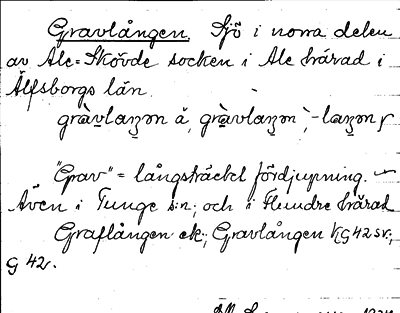 Gravlången. Sjö i norra delen
av Ale-Skövde socken i Ale härad i
Älfsborgs län.
"Grav" = långsträckt fördjupning.
Även i Tunge s:n; och i Flundre härad
Graflången ek; Gravlången KG42sv.;
G 42.